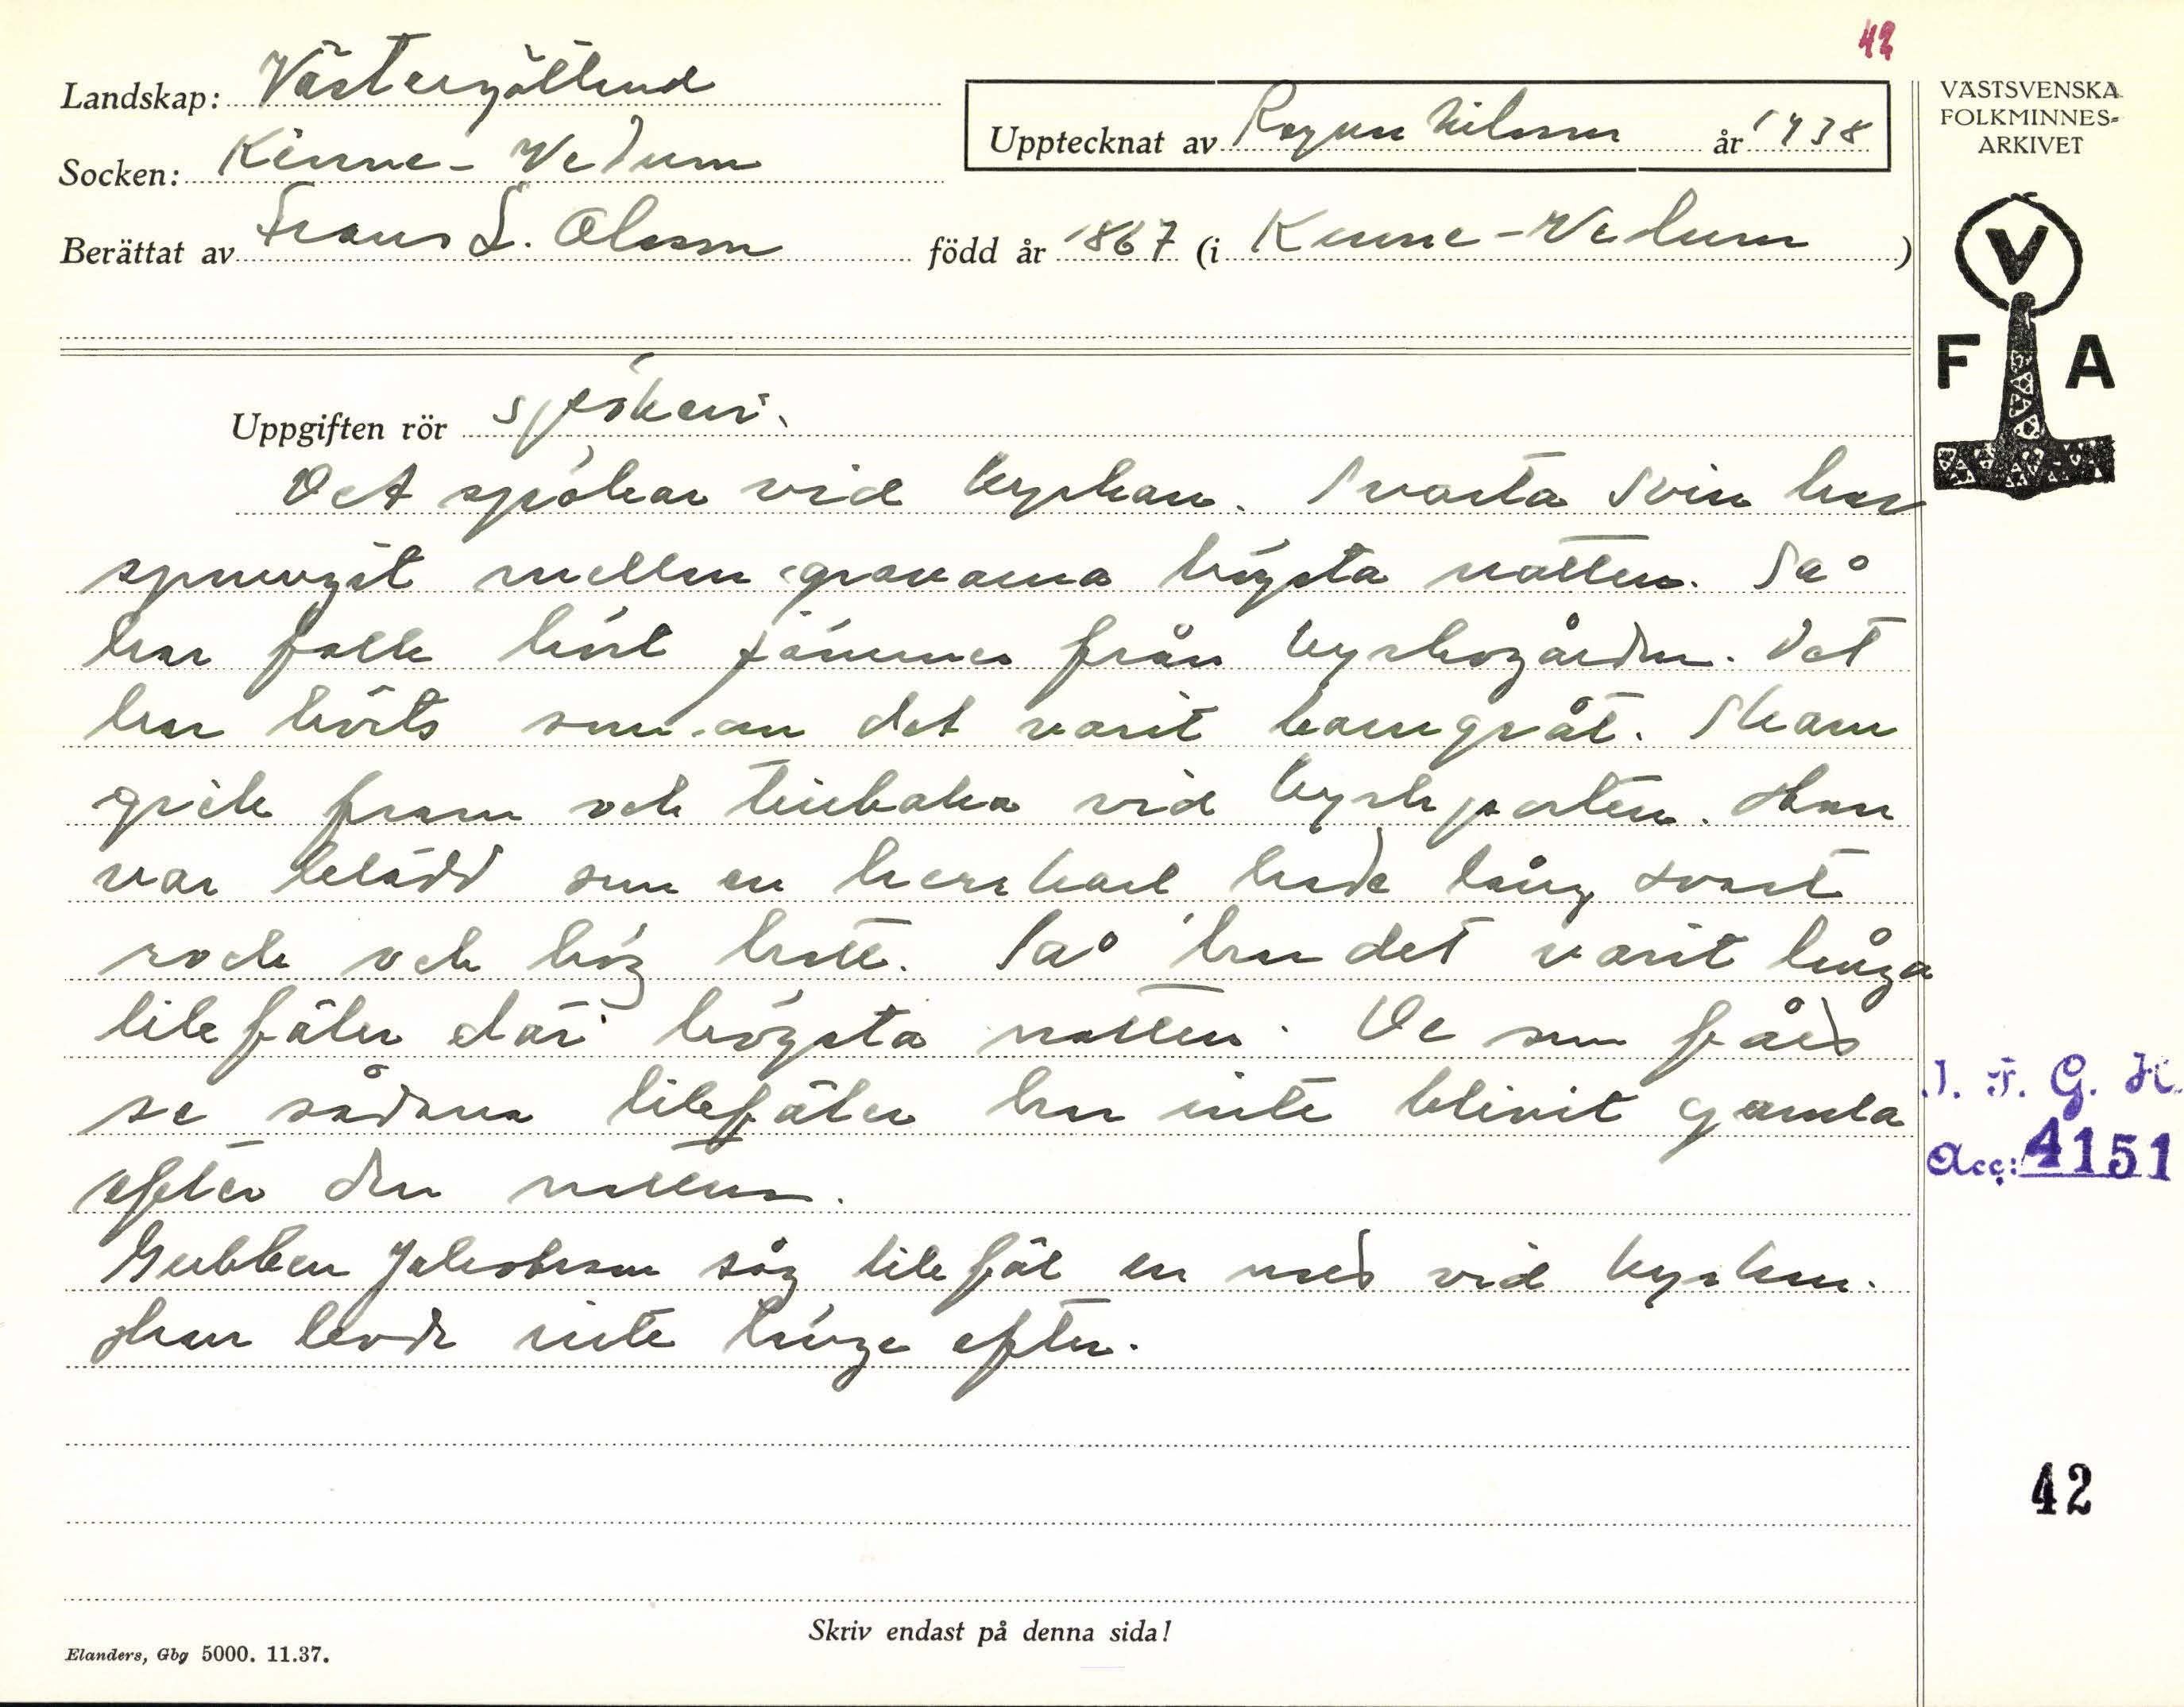 42
Landskap: Västergötland
Upptecknat av Ragnar Nilsson år 1938
Socken: Kinne-Vedum
Berättat av Frans L. Olsson född år 1867 (i Kinne-Vedum)
VÄSTSVENSKA
FOLKMINNES-
ARKIVET
V
F A
Uppgiften rör spökeri.
Det spökar vid kyrkan. Svarta svin har
sprungit mellan gravarna högsta natten. Så
har folk hört jämmer från kyrkogården. Det
har hörts som om det varit barngråt. Skam
gick fram och tillbaka vid kyrkporten. Han
var klädd som en herrkarl hade lång svart
rock och hög hatt. Så har det varit långa
likfäler där högsta natten. De som fåed
se sådana likfäler har inte blivit gamla
efter den natten.
Gubben Jakobsson såg likfäl en natt vid kyrkan.
Han levde inte länge efter.
I. F. G. H.
Acc: 4151
42
Skriv endast på denna sida!
Elanders, Gbg 5000. 11.37.